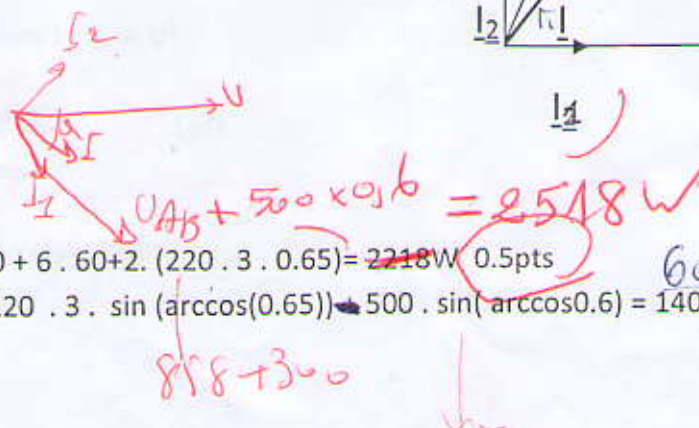 I2
I2
I1
U
I
I1
UAB + 500 x 0,6 = 2518 W
0 + 6 . 60+2. (220 . 3 . 0.65)= 2218W 0.5pts
20 . 3 . sin (arccos(0.65)) 500 . sin( arccos0.6) = 140
858+300